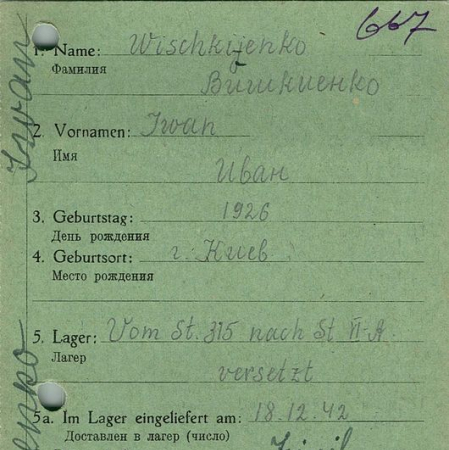 667
1. Name: Wischkijenko
Фамилия
Вишкиенко
2. Vornamen: Iwan
Имя
Иван
3. Geburtstag: 1926
День рождения
4. Geburtsort: г. Киев
Место рождения
5. Lager: Vom St. 315 nach St II-A
Лагер
versetzt
5a. Im Lager eingeliefert am: 18.12.42
Доставлен в лагер (число)
Zivil
Iwan
enko